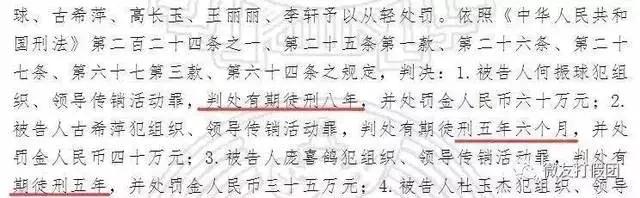 球、古希萍、高长玉、王丽丽、李轩予以从轻处罚。依照《中华人民共和
国刑法》第二百二十四条之一、第二十五条第一款、第二十六条、第二十
七条、第六十七第三款、第六十四条之规定，判决：1.被告人何振球犯组
织、领导传销活动罪，判处有期徒刑八年，并处罚金人民币六十万元；2.
被告人古希萍犯组织、领导传销活动罪，判处有期徒刑五年六个月，并处
罚金人民币四十万元；3.被告人庞喜鸽犯组织、领导传销活动罪，判处有
期徒刑五年，并处罚金人民币三十五万元；4.被告人杜玉杰犯组织、领导
微友打假团